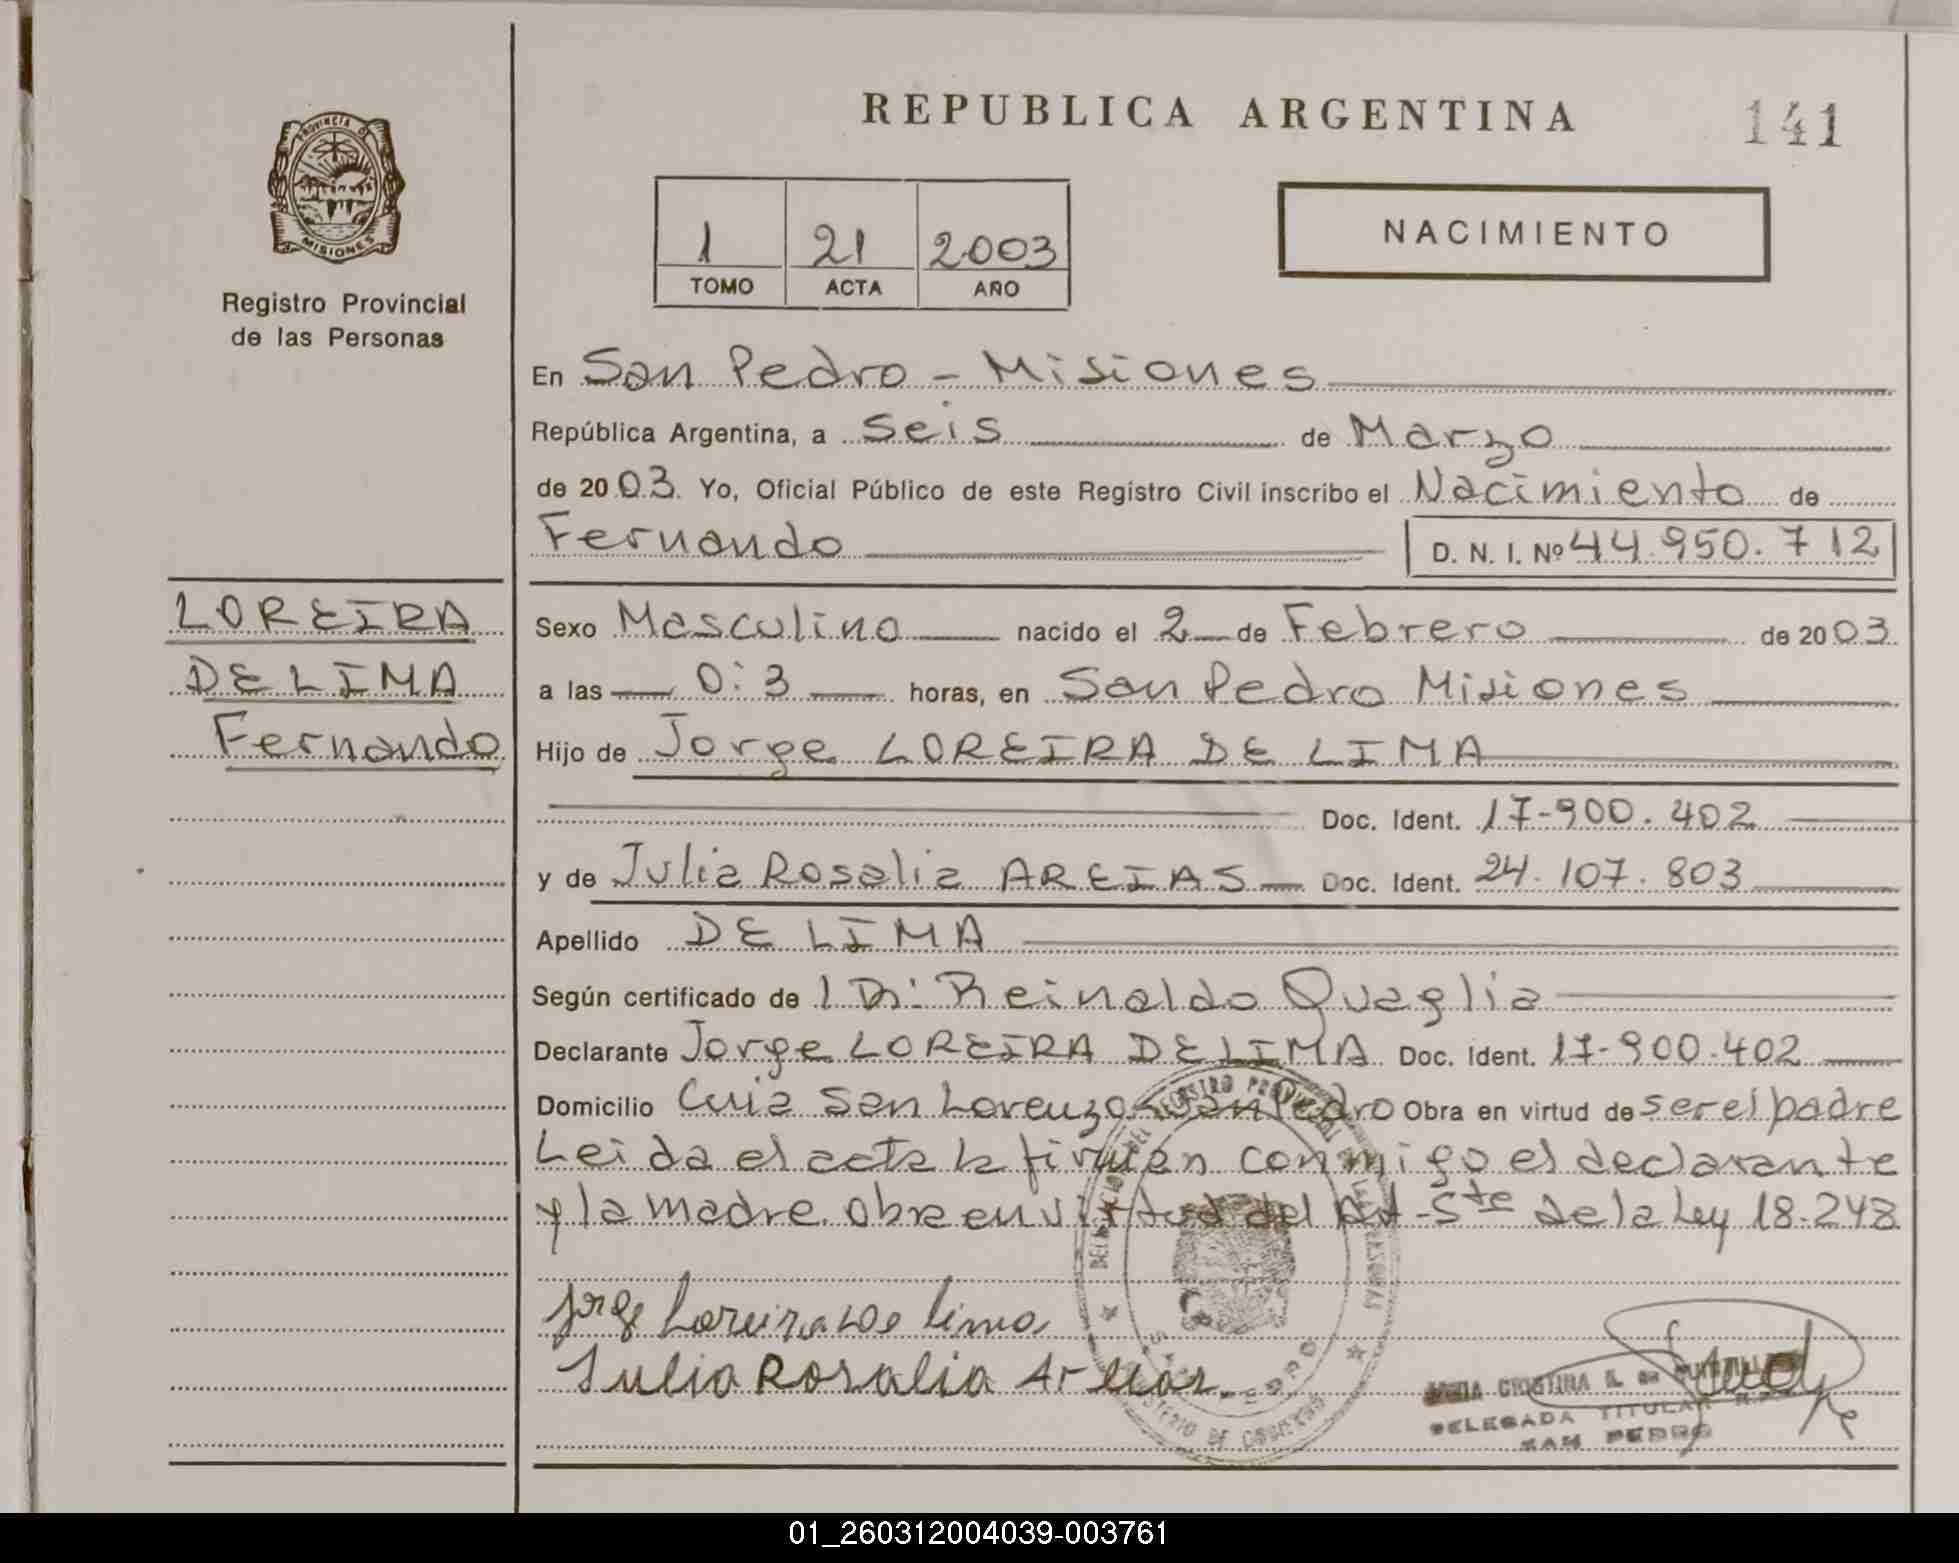 REPUBLICA ARGENTINA
141
PROVINCIA DE
MISIONES
Registro Provincial
de las Personas
1 21 2003
TOMO ACTA AÑO
NACIMIENTO
En San Pedro - Misiones
República Argentina, a Seis de Marzo
de 2003. Yo, Oficial Público de este Registro Civil inscribo el Nacimiento de
Fernando D. N. I. Nº 44.950.712
LOREIRA
DE LIMA
Fernando
Sexo Masculino nacido el 2 de Febrero de 2003.
a las 0:3 horas, en San Pedro Misiones
Hijo de Jorge LOREIRA DE LIMA
Doc. Ident. 17-900.402
y de Julia Rosalia AREIAS Doc. Ident. 24.107.803
Apellido DE LIMA
Según certificado de Dr. Reinaldo Quaglia
Declarante Jorge LOREIRA DE LIMA Doc. Ident. 17-900.402
Domicilio San Lorenzo - San Pedro Obra en virtud de ser el padre
Leida el acta la firman conmigo el declarante
y la madre. Obra en virtud del Art-5te de la Ley 18.248
Jorge Loreira De lima
Julia Rosalia
CRISTINA
DELEGADA TITULAR
SAN PEDRO
01_260312004039-003761